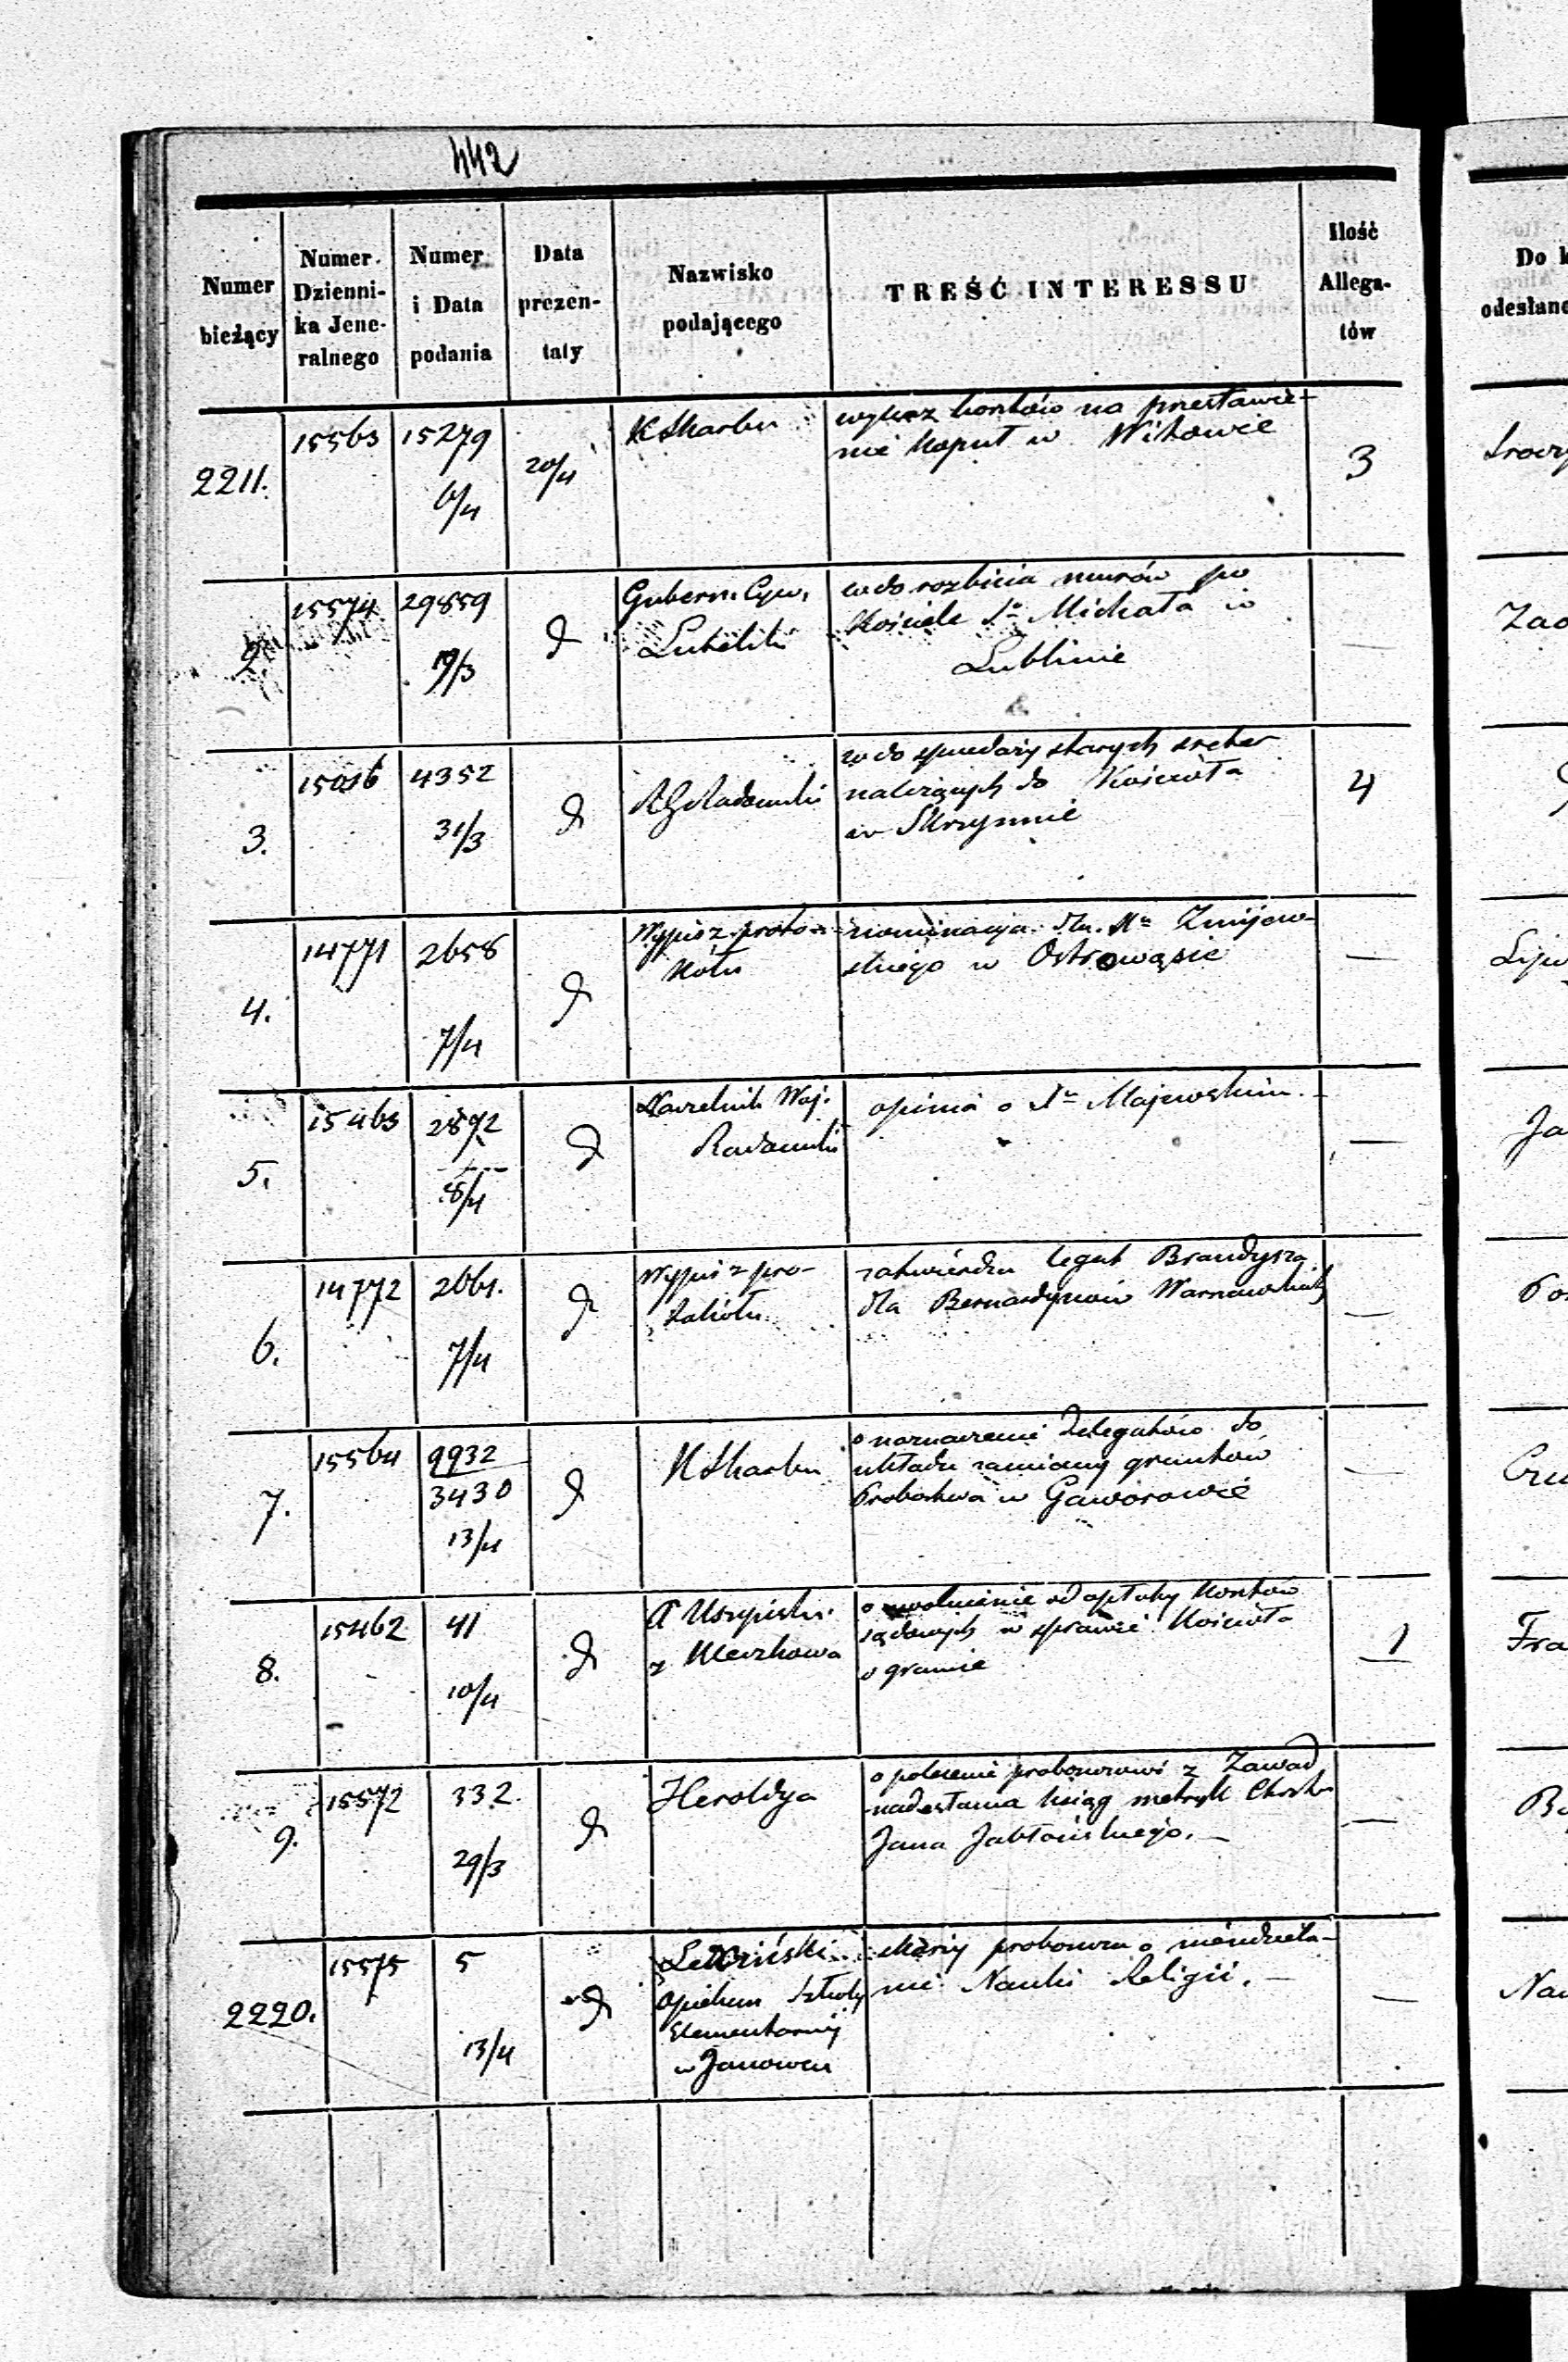 442
Numer bieżący
Numer Dzienni-
ka Jene-
ralnego
Numer
i Data
podania
Data
prezen-
taty
Nazwisko
podającego
TREŚĆ INTERESSU
Ilość
Allega-
tów
Do
odesłano
2211.
15563
15279
6/4
20/4
K Skarbu
wykaz kosztów na przestawie-
nie w Witowie
3
2.
15574
29859
19/3
d
Gubern. Cyw.
Lubelski
w do rozbicia murów po
Kościele Sgo Michała w
Lublinie
—
3.
15016
4352
31/3
d
RG Radomski
w do sprzedaży starych
należących do Kościoła
w Skrzynnie
4
4.
14771
2658
7/4
d
Wypis z proto-
kółu
nominacja dla Xa Żmijew-
skiego w Ostrowąsie
—
5.
15463
2892
8/4
d
Naczelnik Woj.
Radomski
opinia o Xu Majewskim.
—
6.
14772
2661.
7/4
d
Wypis z pro-
tokółu
zatwierdza legat Brandysza
dla Bernardynów Warszawskich
—
7.
15564
9932
3430
13/4
d
K Skarbu
o naznaczenie Delegatów do
układu zamiany gruntów
Probostwa w Gaworowie
—
8.
15462
41
10/4
d
X
z
o uwolnienie od opłaty kosztów
sądowych w sprawie Kościoła
o granice
1
9.
15572
332.
29/3
d
Heroldya
o polecenie proboszczowi z Zawad
nadesłania ksiąg metryk Chrztu
Jana Jabłońskiego. —
—
2220.
15575
5
13/4
d
opiekun Szkoły
Elementarnej
w Janowcu
skarży proboszcza o nieudziela-
nie Nauki Religii. —
—